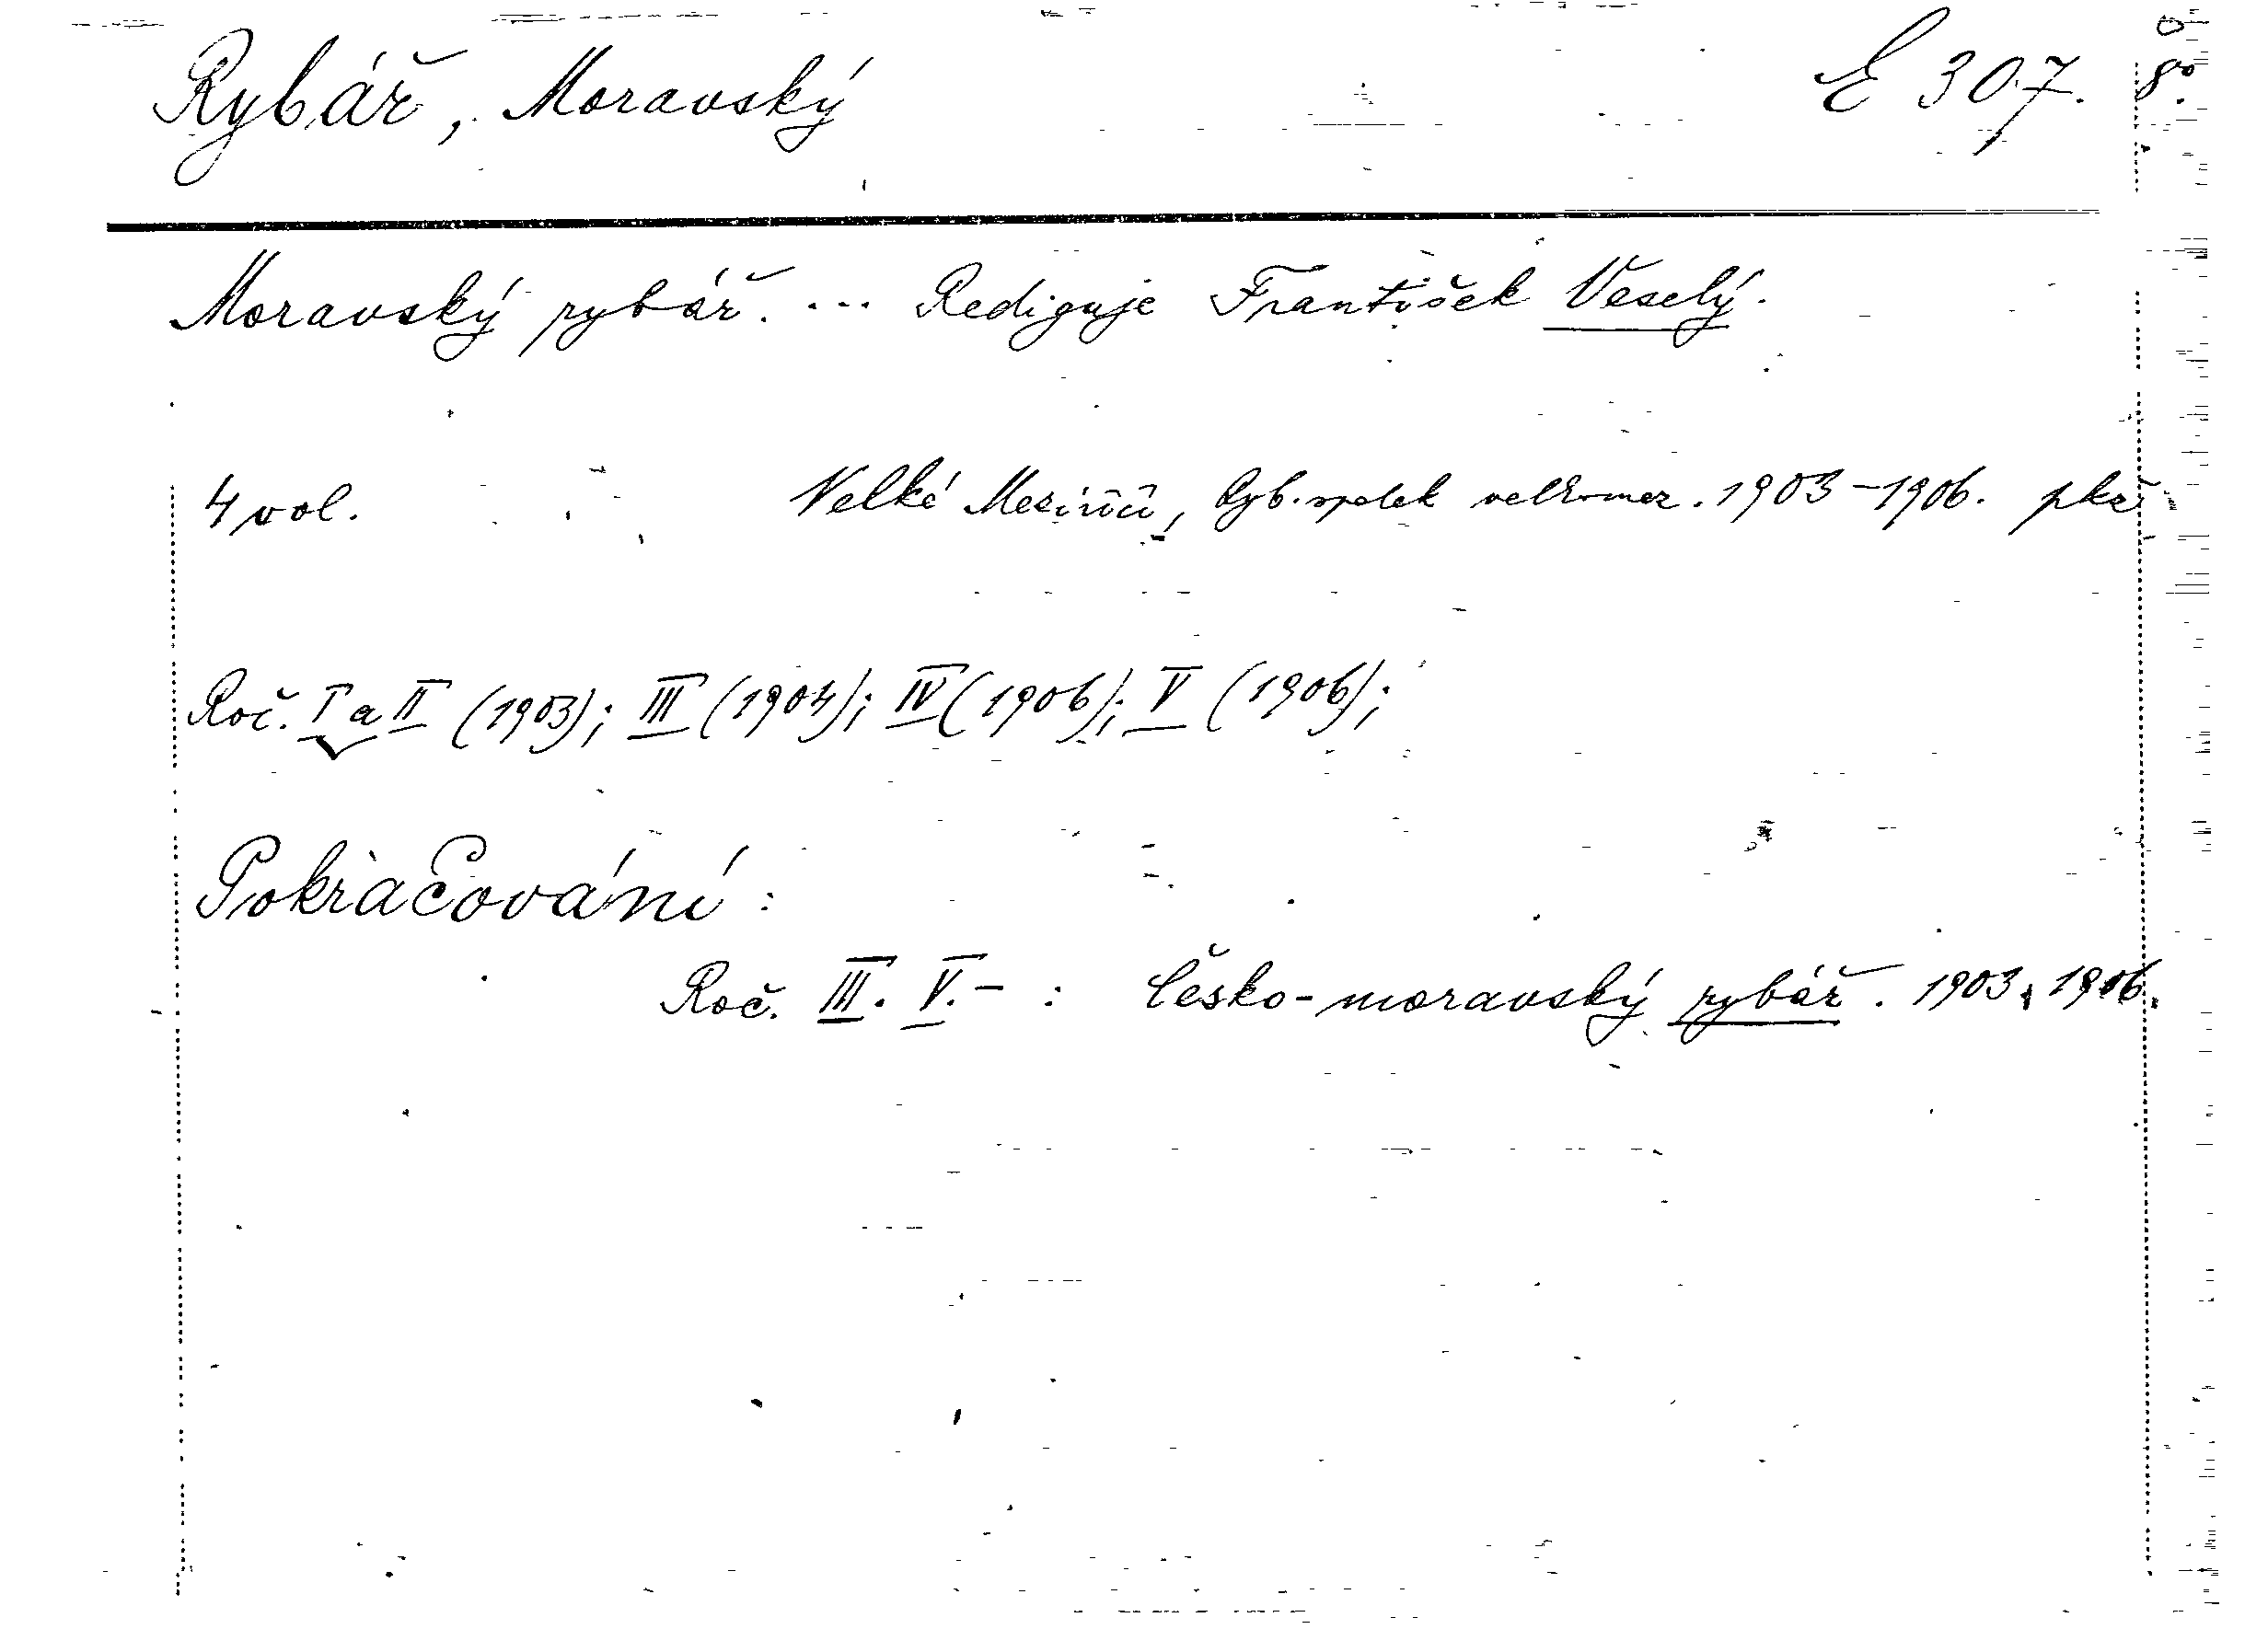 Rybář, Moravský E 307. 8°.
Moravský rybář. ... Rediguje František Veselý.
4 vol. Velké Meziříčí, Ryb. spolek velkomez. 1903-1906.
Roč. I a II (1903); III (1904); IV (1906); V (1906);
Pokračování:
Roč. III. V. - : Česko-moravský rybář. 1903, 1906.